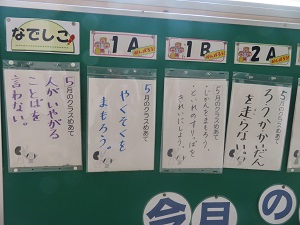 なでしこ
5月のクラスめあて
人がいやがる
ことばを
言わない。
1A
5月のクラスめあて
やくそくを
まもろう。
1B
5月のクラスめあて
・じかんをまもろう。
・といれのすりっぱを
きれいにしよう。
2A
5月のクラスめあて
ろうかかいだん
を走らない。
今月の